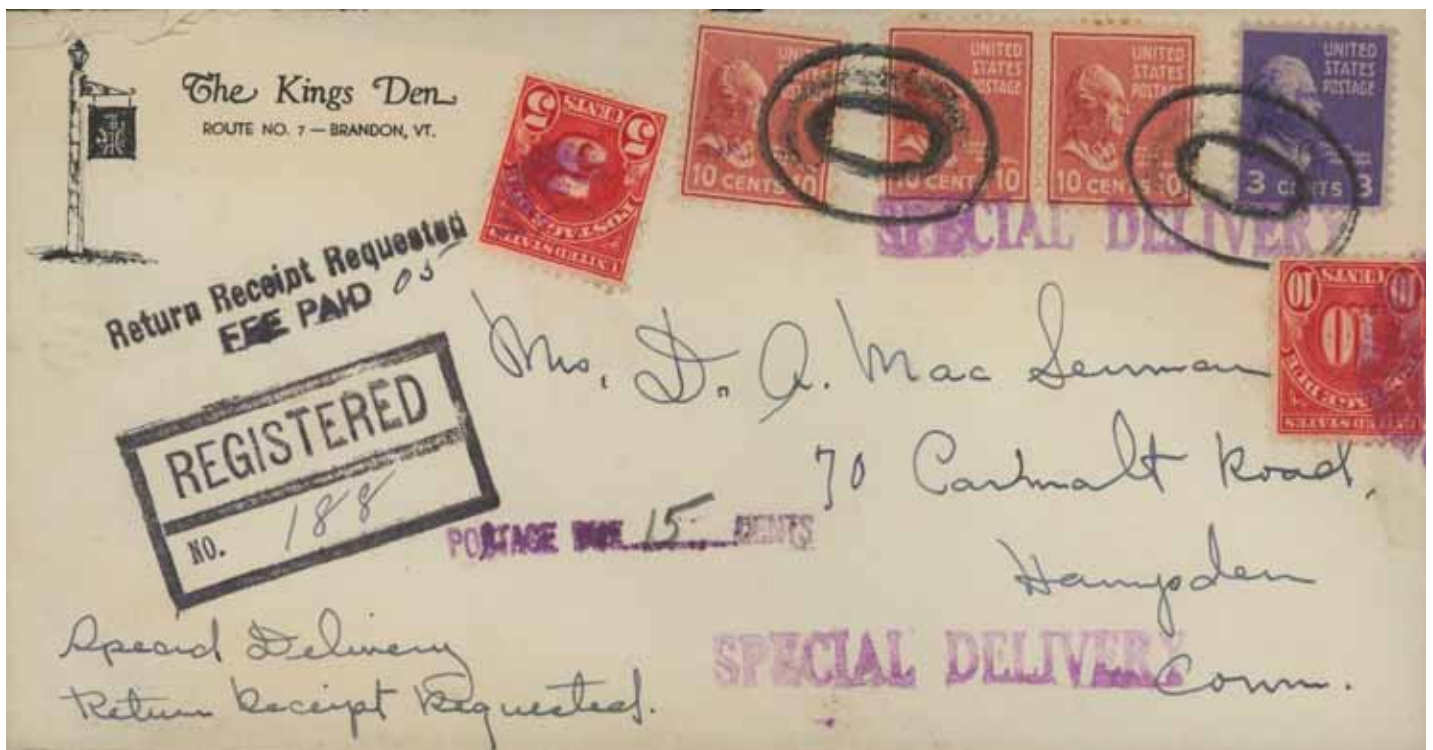 The Kings Den
ROUTE NO. 7 — BRANDON, VT.
5 CENTS 5
POSTAGE
UNITED STATES
UNITED STATES POSTAGE
10 CENTS 10
UNITED STATES POSTAGE
10 CENTS 10
UNITED STATES POSTAGE
10 CENTS 10
UNITED STATES POSTAGE
3 CENTS 3
SPECIAL DELIVERY
10 CENTS 10
10
POSTAGE DUE
UNITED STATES
Return Receipt Requested
FEE PAID 05
REGISTERED
NO. 188
Mrs. D. A. Mac
70 Road,
Hampden
Conn.
POSTAGE DUE 15 CENTS
Special Delivery
Return Receipt Requested.
SPECIAL DELIVERY